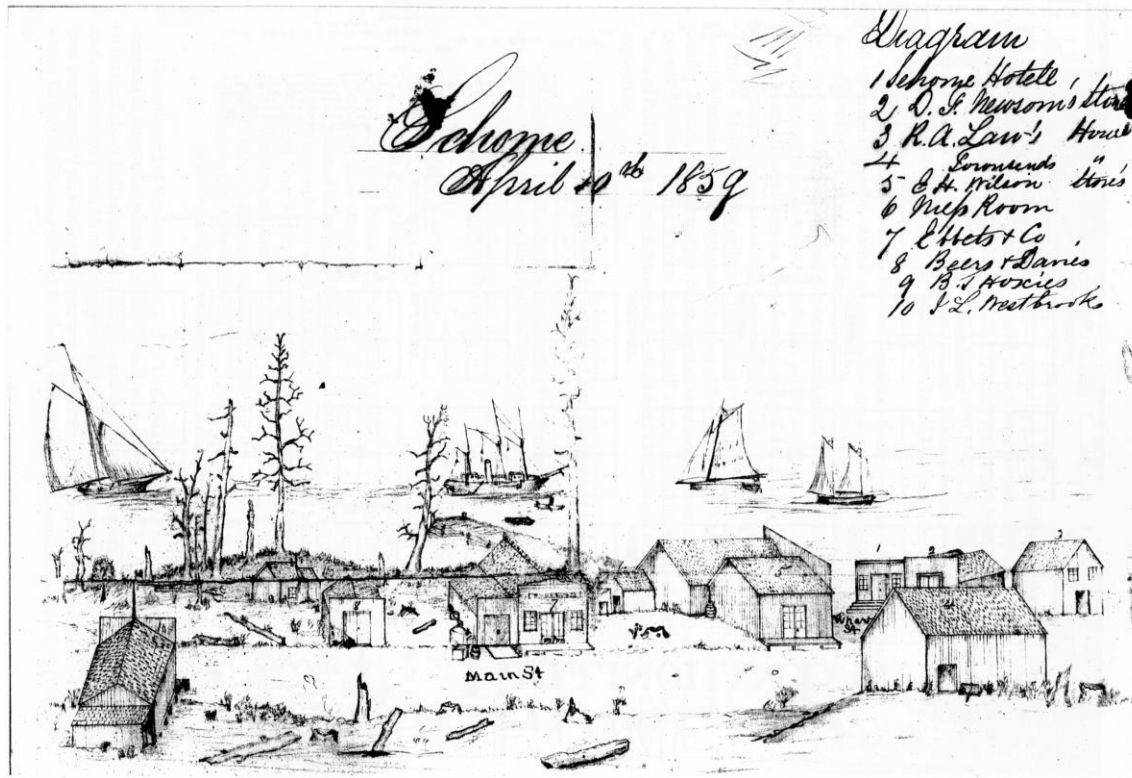 Sehome
April 10th 1859
Diagram
1 Sehome Hotell
2 D. F. Newsom's Store
3 R. A. Law's House
4 Townsends "
5 E. H. Wilson Store's
6 Mess Room
7 Ebbets & Co
8 Beers & Davies
9 B. S Hoxies
10 J L. Westbrook
1
2
3
4
5
7
8
Wharf
St
Main St